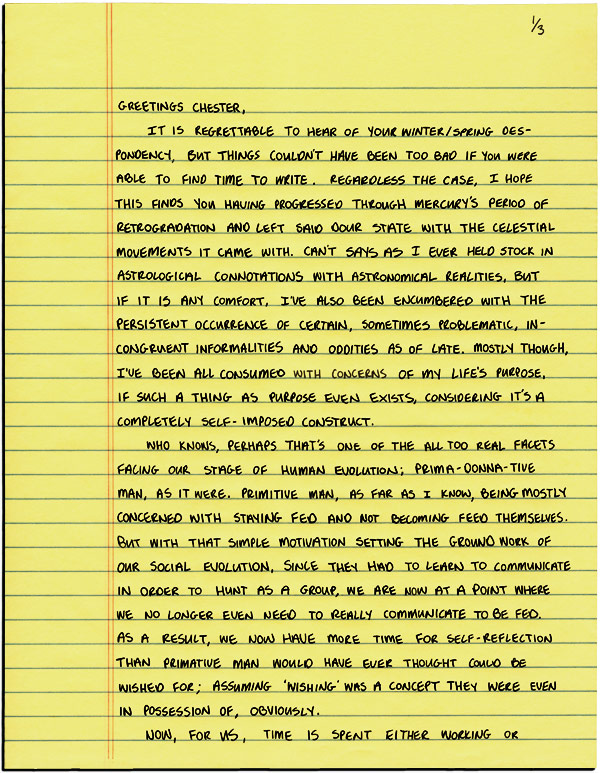 1/3
GREETINGS CHESTER,
IT IS REGRETTABLE TO HEAR OF YOUR WINTER/SPRING DES-
PONDENCY, BUT THINGS COULDN'T HAVE BEEN TOO BAD IF YOU WERE
ABLE TO FIND TIME TO WRITE. REGARDLESS THE CASE, I HOPE
THIS FINDS YOU HAVING PROGRESSED THROUGH MERCURY'S PERIOD OF
RETROGRADATION AND LEFT SAID DOUR STATE WITH THE CELESTIAL
MOVEMENTS IT CAME WITH. CAN'T SAYS AS I EVER HELD STOCK IN
ASTROLOGICAL CONNOTATIONS WITH ASTRONOMICAL REALITIES, BUT
IF IT IS ANY COMFORT, I'VE ALSO BEEN ENCUMBERED WITH THE
PERSISTENT OCCURRENCE OF CERTAIN, SOMETIMES PROBLEMATIC, IN-
CONGRUENT INFORMALITIES AND ODDITIES AS OF LATE. MOSTLY THOUGH,
I'VE BEEN ALL CONSUMED WITH CONCERNS OF MY LIFE'S PURPOSE,
IF SUCH A THING AS PURPOSE EVEN EXISTS, CONSIDERING IT'S A
COMPLETELY SELF-IMPOSED CONSTRUCT.
WHO KNOWS, PERHAPS THAT'S ONE OF THE ALL TOO REAL FACETS
FACING OUR STAGE OF HUMAN EVOLUTION; PRIMA-DONNA-TIVE
MAN, AS IT WERE. PRIMITIVE MAN, AS FAR AS I KNOW, BEING MOSTLY
CONCERNED WITH STAYING FED AND NOT BECOMING FEED THEMSELVES.
BUT WITH THAT SIMPLE MOTIVATION SETTING THE GROUND WORK OF
OUR SOCIAL EVOLUTION, SINCE THEY HAD TO LEARN TO COMMUNICATE
IN ORDER TO HUNT AS A GROUP, WE ARE NOW AT A POINT WHERE
WE NO LONGER EVEN NEED TO REALLY COMMUNICATE TO BE FED.
AS A RESULT, WE NOW HAVE MORE TIME FOR SELF-REFLECTION
THAN PRIMATIVE MAN WOULD HAVE EVER THOUGHT COULD BE
WISHED FOR; ASSUMING 'WISHING' WAS A CONCEPT THEY WERE EVEN
IN POSSESSION OF, OBVIOUSLY.
NOW, FOR US, TIME IS SPENT EITHER WORKING OR